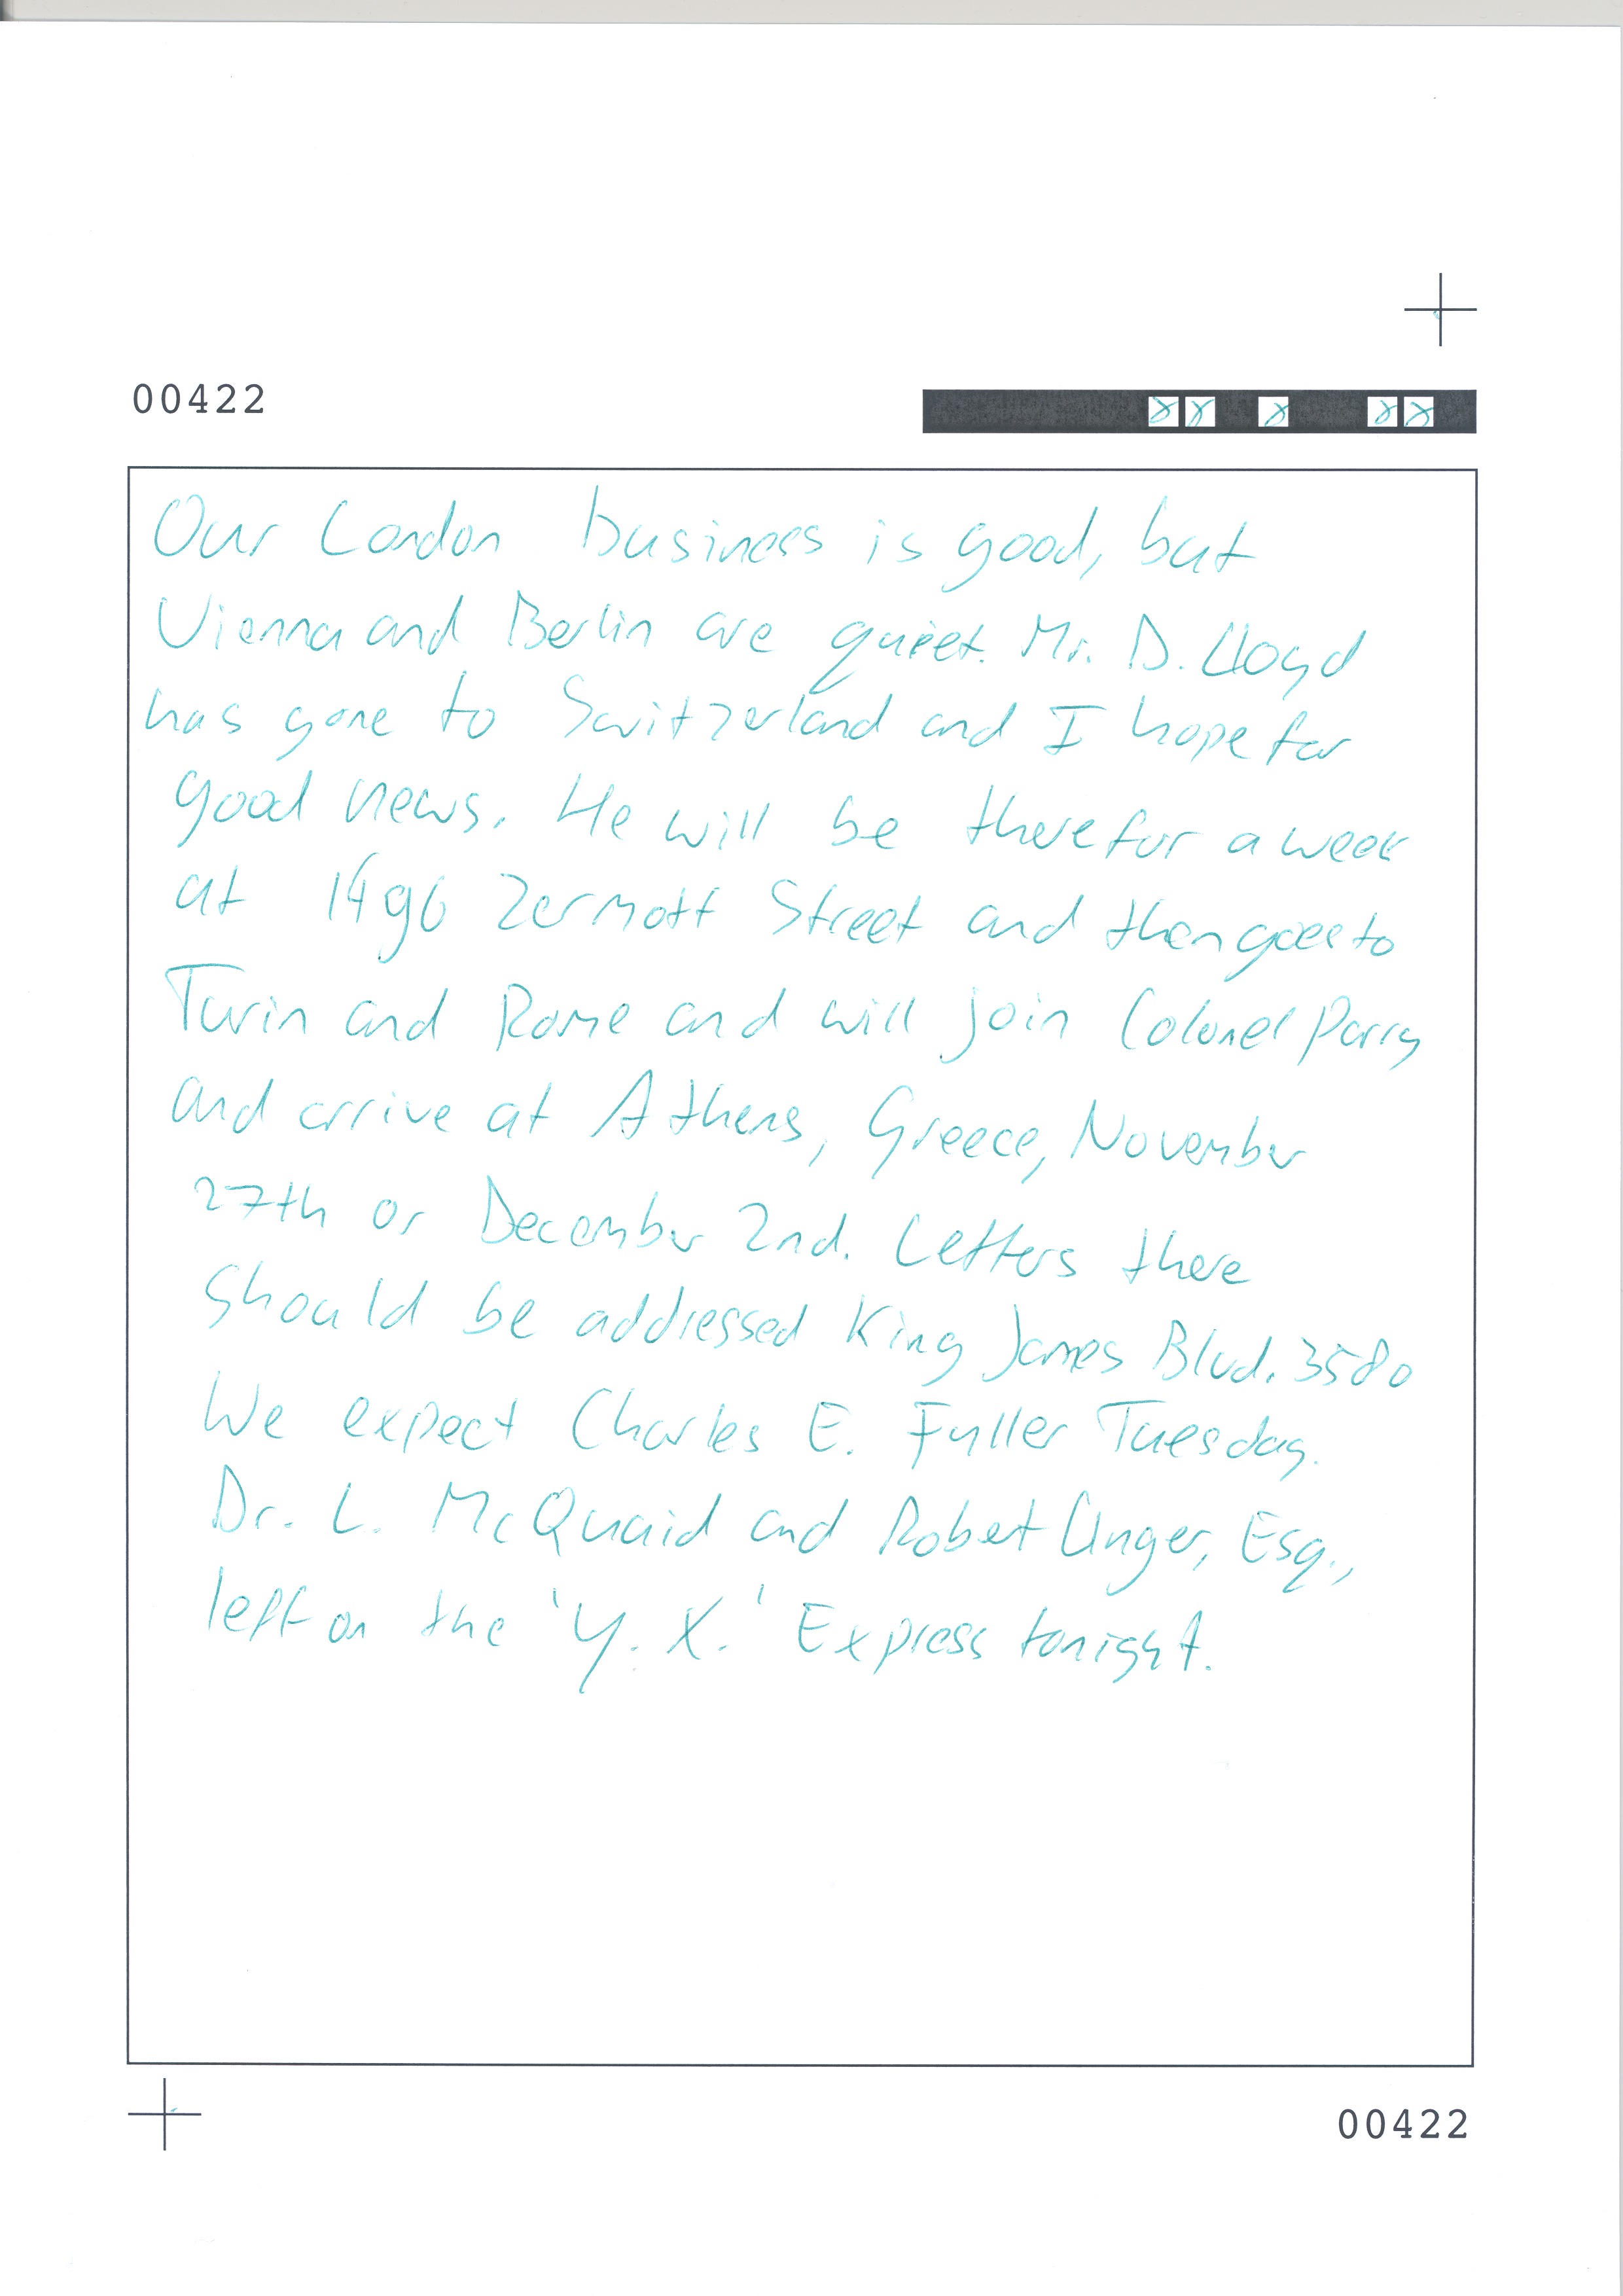 00422
Our London business is good, but
Vienna and Berlin are quiet. Mr. D. Lloyd
has gone to Switzerland and I hope for
good news. He will be there for a week
at 1496 Zermott Street and then goes to
Turin and Rome and will join Colonel Parry
and arrive at Athens, Greece, November
27th or December 2nd. Letters there
should be addressed King James Blvd. 3580
We expect Charles E. Fuller Tuesday.
Dr. L. McQuaid and Robert Unger, Esq.,
left on the 'Y. X.' Express tonight.
00422